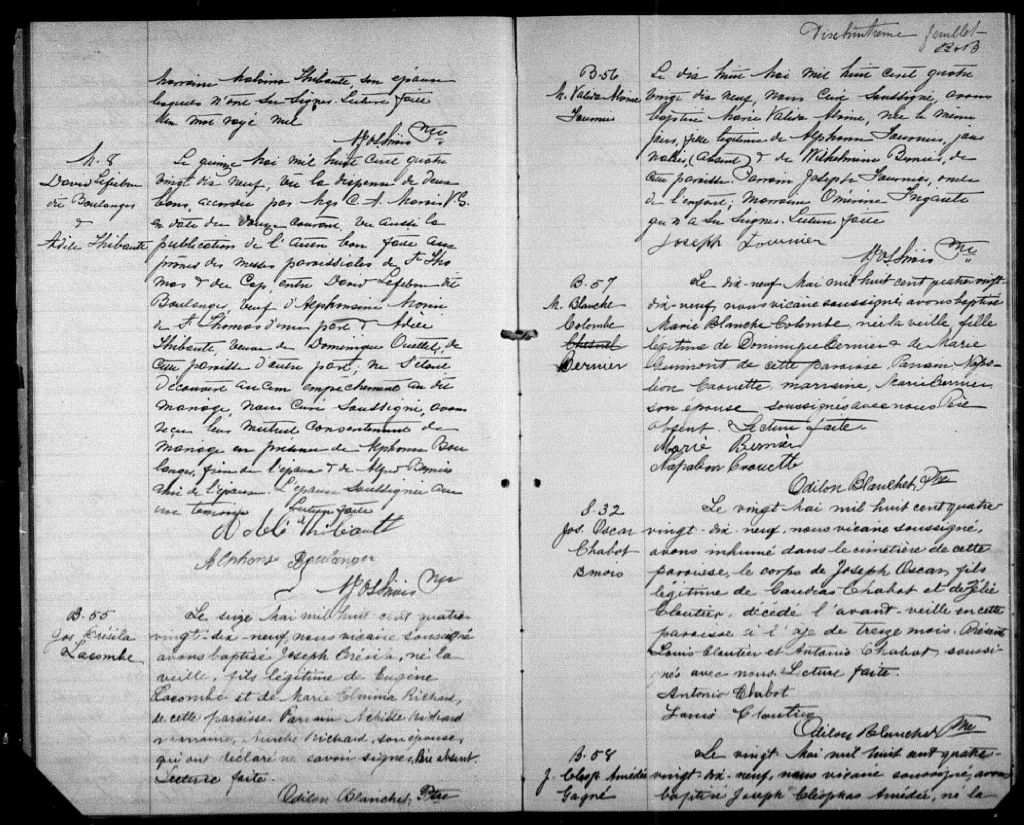 marraine Malvina Thibault son épouse
lesquels n'ont su signer. Lecture faite
Un mot rayé nul
Ptre
M. 8
David Lefebvre
dit Boulanger
&
Adèle Thibault
Le quinze Mai mil huit cent quatre
vingt dix neuf, vu la dispense de deux
bans, accordée par Mgr C. A. Marois V.G.
en date du douze courant, vu aussi la
publication de l'autre ban faite aux
prônes des messes paroissiales de St Tho
mas & du Cap, entre David Lefebvre dit
Boulanger, veuf d'Alphonsine Morin
de St Thomas d'une part & Adèle
Thibault, veuve de Dominique Ouellet, de
cette paroisse d'autre part; ne s'étant
découvert aucun empêchement au dit
mariage, Nous Curé soussigné, avons
reçu leur mutuel consentement de
mariage en présence de Alphonse Bou
langer, frère de l'époux & de Alfred Bernier
ami de l'épouse. L'épouse soussignée avec
un témoin Lecture faite
Adèle Thibault
Alphonse Boulanger
Ptre
B. 55
Jos. Trésila
Lacombe
Le seize Mai mil huit cent quatre-
vingt-dix-neuf, nous vicaire soussigné
avons baptisé Joseph Trésila, né la
veille, fils légitime de Eugène
Lacombe et de Marie Elmina Richard,
de cette paroisse. Parrain Achille Richard
marraine, Aurélie Richard, son épouse,
qui ont déclaré ne savoir signer. Père absent.
Lecture faite.
Odilon Blanchet, Ptre
Dixhuitième feuillet
B. 56
M. Valéda Alvine
Fournier
Le dix huit Mai mil huit cent quatre
vingt dix neuf, Nous Curé soussigné, avons
baptisé Marie Valéda Alvine, née le même
jour, fille légitime de Alphonse Fournier, jour
nalier, (absent) & de Wilhelmine Bernier, de
cette paroisse. Parrain Joseph Fournier, oncle
de l'enfant; marraine
qui n'a su signer. Lecture faite
Joseph Fournier
Ptre
B. 57
M. Blanche
Colombe
Bernier
Le dix-neuf Mai mil huit cent quatre-vingt
dix-neuf, nous vicaire soussigné, avons baptisé
Marie Blanche Colombe, née la veille, fille
légitime de Dominique Bernier & de Marie
de cette paroisse. Parrain Napo-
léon Caouette, marraine, Marie Bernier
son épouse soussignés avec nous. Père
absent. Lecture faite.
Marie Bernier
Napoléon Caouette
Odilon Blanchet, Ptre
S. 32
Jos. Oscar
Chabot
mois
Le vingt Mai mil huit cent quatre
vingt-dix-neuf, nous vicaire soussigné,
avons inhumé dans le cimetière de cette
paroisse, le corps de Joseph Oscar, fils
légitime de Gaudias Chabot et de Zélie
Cloutier, décédé l'avant-veille en cette
paroisse à l'âge de treize mois. Présents
Louis Cloutier et Antonio Chabot, soussi-
gnés avec nous. Lecture faite.
Antonio Chabot
Louis Cloutier
Odilon Blanchet, Ptre
B. 58
J. Cléop. Amédée
Gagné
Le vingt Mai mil huit cent quatre-
vingt-dix-neuf, nous vicaire soussigné, avons
baptisé Joseph Cléophas Amédée, né la